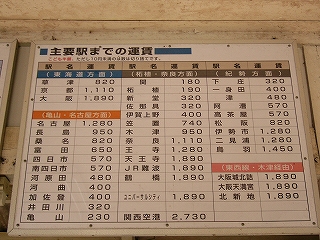 主要駅までの運賃
こども半額。ただし10円未満のは数は切り捨てです。
駅名 運賃 駅名 運賃 駅名 運賃
(東海道方面)
草津 820
京都 1,110
大阪 1,890
(亀山・名古屋方面)
名古屋 1,280
長島 950
桑名 820
富田 650
四日市 570
南四日市 570
河原田 480
河曲 400
加佐登 400
井田川 320
亀山 230
(柘植・奈良方面)
関 180
柘植 190
新堂 320
佐那具 320
伊賀上野 400
笠置 740
木津 950
奈良 1,110
王寺 1,450
天王寺 1,890
JR難波 1,890
鶴橋 1,890
ユニバーサルシティ 1,890
関西空港 2,730
(紀勢方面)
下庄 320
一身田 400
津 480
阿漕 570
高茶屋 570
松阪 820
伊勢市 1,280
二見浦 1,280
鳥羽 1,450
(東西線・木津経由)
大阪城北詰 1,890
大阪天満宮 1,890
北新地 1,890